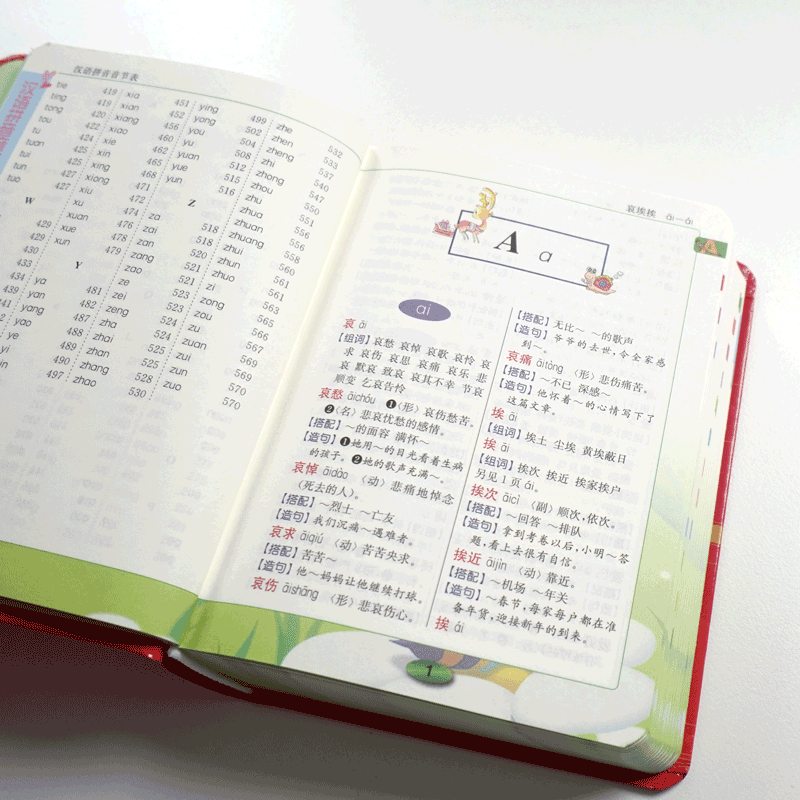 汉语拼音音节表
tie 419
ting 419
tong 420
tou 422
tu 424
tuan 425
tui 425
tun 427
tuo 427
W
429
429
430
433
434
439
xia 451
xian 452
xiang 456
xiao 460
xie 462
xin 465
xing 468
xiong 471
xiu 472
xu 474
xuan 476
xue 478
xun 479
Y
ya 481
yan 482
yang 487
yao 488
ye 489
yi 490
yin 497
ying 499
yong 502
you 504
yu 508
yuan 512
yue 515
yun 516
Z
za 518
zai 518
zan 520
zang 521
zao 521
ze 523
zei 523
zeng 524
zha 524
zhai 525
zhan 525
zhang 528
zhao 530
zhe 532
zhen 533
zheng 537
zhi 540
zhong 547
zhou 550
zhu 551
zhua 556
zhuan 556
zhuang 558
zhui 560
zhun 561
zhuo 561
zi 563
zong 565
zou 566
zu 567
zuan 569
zui 569
zun 570
zuo 570
哀埃挨 āi—āi
A
A a
āi
哀 āi
【组词】哀愁 哀悼 哀歌 哀怜 哀
求 哀伤 哀思 哀痛 哀乐 悲
哀 默哀 致哀 哀其不幸 节哀
顺变 乞哀告怜
哀愁 āichóu ❶〈形〉哀伤愁苦。
❷〈名〉悲哀忧愁的感情。
【搭配】～的面容 满怀～
【造句】❶她用～的目光看着生病
的孩子。❷她的歌声充满～。
哀悼 āidào〈动〉悲痛地悼念
(死去的人)。
【搭配】～烈士 ～亡友
【造句】我们沉痛～遇难者。
哀求 āiqiú〈动〉苦苦央求。
【搭配】苦苦～
【造句】他～妈妈让他继续打球。
哀伤 āishāng〈形〉悲哀伤心。
【搭配】无比～ ～的歌声
【造句】爷爷的去世，令全家感
到～。
哀痛 āitòng〈形〉悲伤痛苦。
【搭配】～不已 深感～
【造句】他怀着～的心情写下了
这篇文章。
埃 āi
【组词】埃土 尘埃 黄埃蔽日
挨 āi
【组词】挨次 挨近 挨家挨户
另见1页ái。
挨次 āicì〈副〉顺次，依次。
【搭配】～回答 ～排队
【造句】拿到考卷以后，小明～答
题，看上去很有自信。
挨近 āijìn〈动〉靠近。
【搭配】～机场 ～年关
【造句】～春节，每家每户都在准
备年货，迎接新年的到来。
挨 ái
1